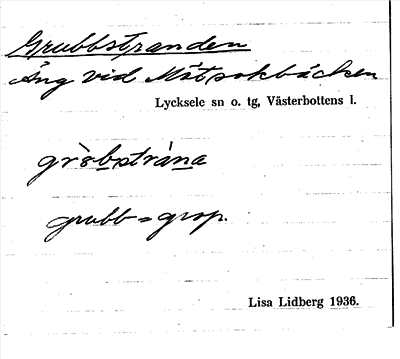 Grubbstranden
Äng vid Mötsokbäcken
Lycksele sn o. tg, Västerbottens l.
grubb = grop.
Lisa Lidberg 1936.